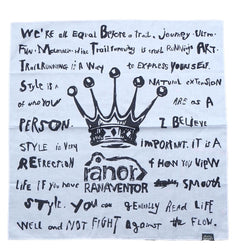 WE'RE all Equal BEfore a trail, Journey. Ultra.
Fun. Mountain-bike. Trail running is not RUNNING ART.
TRAILRUNNING IS A WAY to EXPRESS YOURSELF.
Style IS A NATURAL extension
of who YOU ARE AS A
PERSON. I BELIEVE
STYLE is VERY IMPORTANT. IT IS A
REFLECTION of HOW YOU VIEW
ranor
RANAVENTOR
LIFE IF YOU HAVE SMOOTH
STYLE. YOU CAN GENERALLY READ LIFE
WELL and NOT FIGHT against the FLOW.